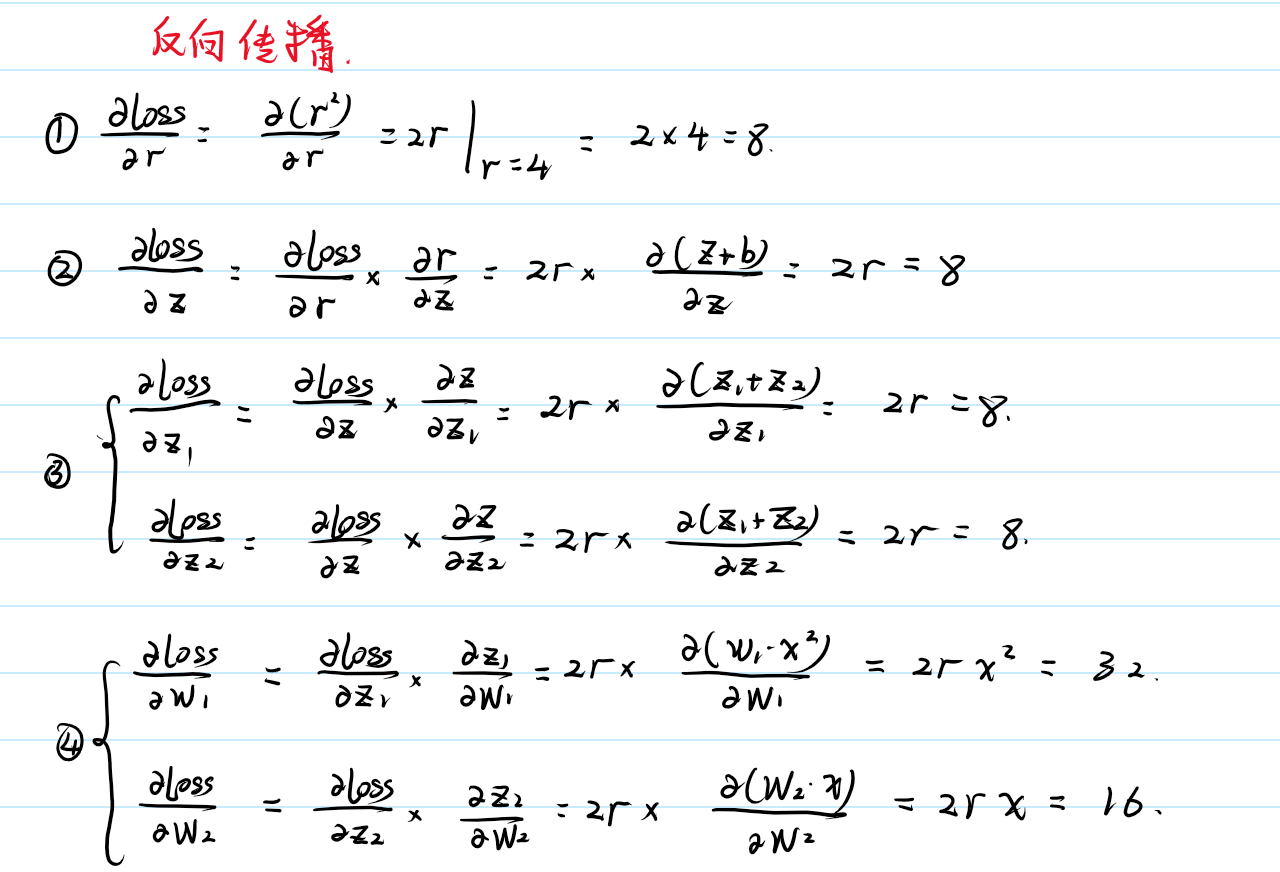 反向传播.
① ∂loss/∂r = ∂(r²)/∂r = 2r |r=4 = 2×4=8.
② ∂loss/∂z = ∂loss/∂r × ∂r/∂z = 2r × ∂(z+b)/∂z = 2r = 8
③ { ∂loss/∂z₁ = ∂loss/∂z × ∂z/∂z₁ = 2r × ∂(z₁+z₂)/∂z₁ = 2r = 8.
∂loss/∂z₂ = ∂loss/∂z × ∂z/∂z₂ = 2r × ∂(z₁+z₂)/∂z₂ = 2r = 8.
④ { ∂loss/∂w₁ = ∂loss/∂z₁ × ∂z₁/∂w₁ = 2r × ∂(w₁·x²)/∂w₁ = 2r x² = 32.
∂loss/∂w₂ = ∂loss/∂z₂ × ∂z₂/∂w₂ = 2r × ∂(w₂·x)/∂w₂ = 2r x = 16.